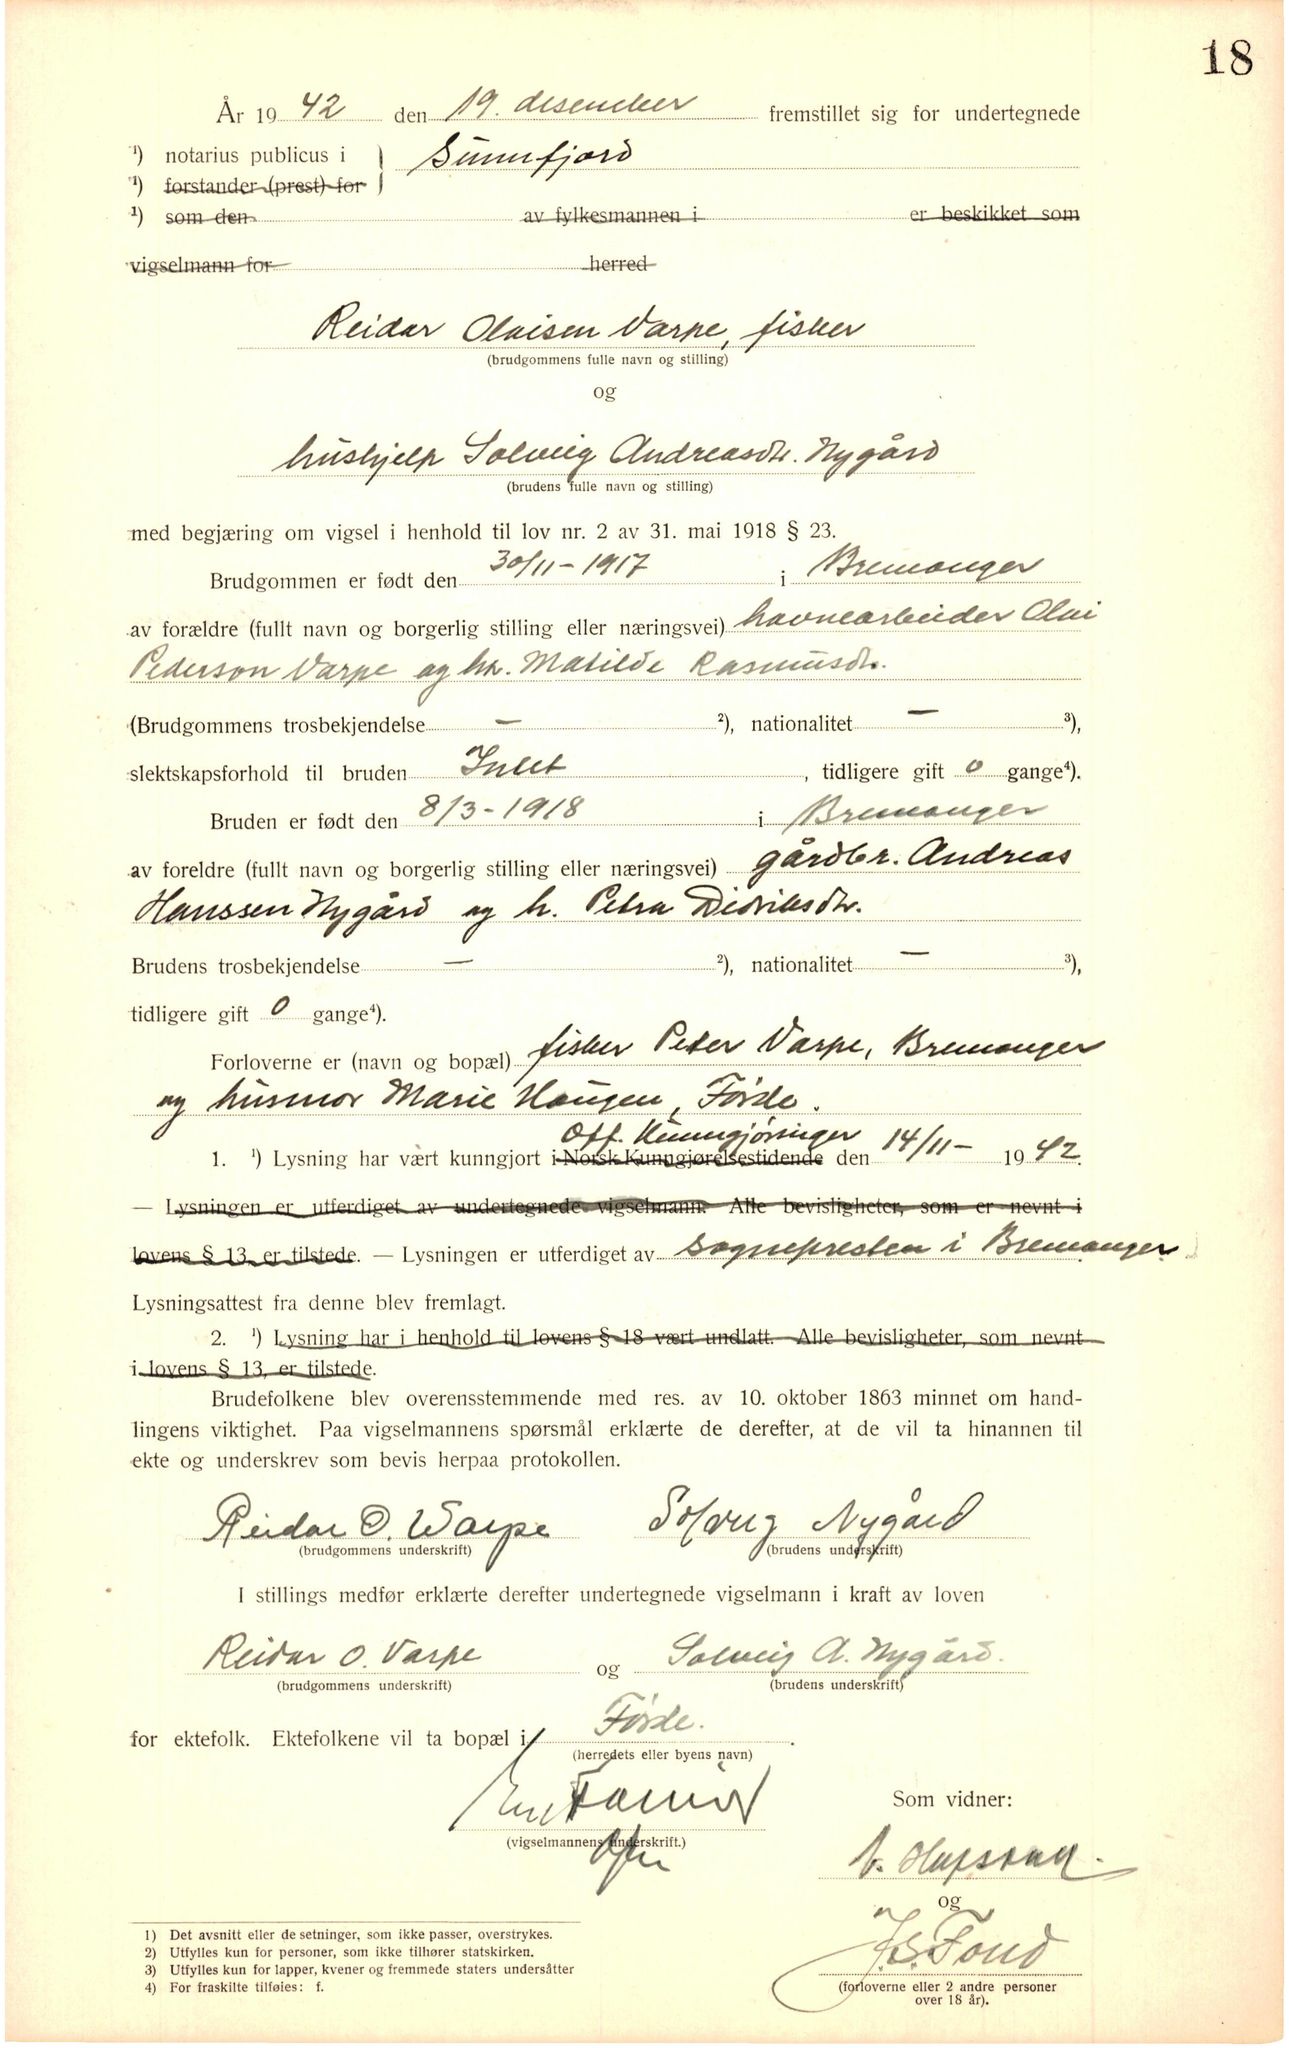 18
År 19 42 den 19. desember fremstillet sig for undertegnede
¹) notarius publicus i } Sunnfjord
¹) forstander (prest) for
¹) som den av fylkesmannen i er beskikket som
vigselmann for herred
Reidar Olaisen Varpe, fisker
(brudgommens fulle navn og stilling)
og
hushjelp Solveig Andreasdtr. Nygård
(brudens fulle navn og stilling)
med begjæring om vigsel i henhold til lov nr. 2 av 31. mai 1918 § 23.
Brudgommen er født den 30/11 - 1917 i Bremanger
av forældre (fullt navn og borgerlig stilling eller næringsvei) havnearbeider Olai
Pederson Varpe og h. Matilde Rasmusdtr.
(Brudgommens trosbekjendelse — ²), nationalitet — ³),
slektskapsforhold til bruden Intet, tidligere gift 0 gange⁴).
Bruden er født den 8/3 - 1918 i Bremanger
av foreldre (fullt navn og borgerlig stilling eller næringsvei) gårdbr. Andreas
Hanssen Nygård og h. Petra Didriksdtr.
Brudens trosbekjendelse — ²), nationalitet — ³),
tidligere gift 0 gange⁴).
Forloverne er (navn og bopæl) fisker Peter Varpe, Bremanger
og husmor Marie Haugen, Førde.
Off. Kunngjøringer
1. ¹) Lysning har vært kunngjort i Norsk Kunngjørelsestidende den 14/11 - 1942.
— Lysningen er utferdiget av undertegnede vigselmann. Alle bevisligheter, som er nevnt i
lovens § 13, er tilstede. — Lysningen er utferdiget av sognepresten i Bremanger.
Lysningsattest fra denne blev fremlagt.
2. ¹) Lysning har i henhold til lovens § 18 vært undlatt. Alle bevisligheter, som nevnt
i lovens § 13, er tilstede.
Brudefolkene blev overensstemmende med res. av 10. oktober 1863 minnet om hand-
lingens viktighet. Paa vigselmannens spørsmål erklærte de derefter, at de vil ta hinannen til
ekte og underskrev som bevis herpaa protokollen.
Reidar O. Warpe Solveig Nygård
(brudgommens underskrift) (brudens underskrift)
I stillings medfør erklærte derefter undertegnede vigselmann i kraft av loven
Reidar O. Varpe og Solveig A. Nygård.
(brudgommens underskrift) (brudens underskrift)
for ektefolk. Ektefolkene vil ta bopæl i Førde.
(herredets eller byens navn)
Som vidner:
(vigselmannens underskrift.)
og
J.S. Fond
(forloverne eller 2 andre personer
over 18 år).
1) Det avsnitt eller de setninger, som ikke passer, overstrykes.
2) Utfylles kun for personer, som ikke tilhører statskirken.
3) Utfylles kun for lapper, kvener og fremmede staters undersåtter
4) For fraskilte tilføies: f.